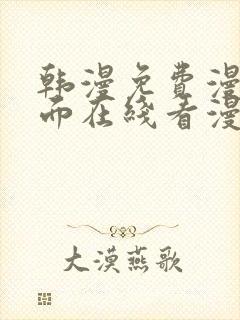 韩漫免費漫
而在线看漫
大漠燕歌